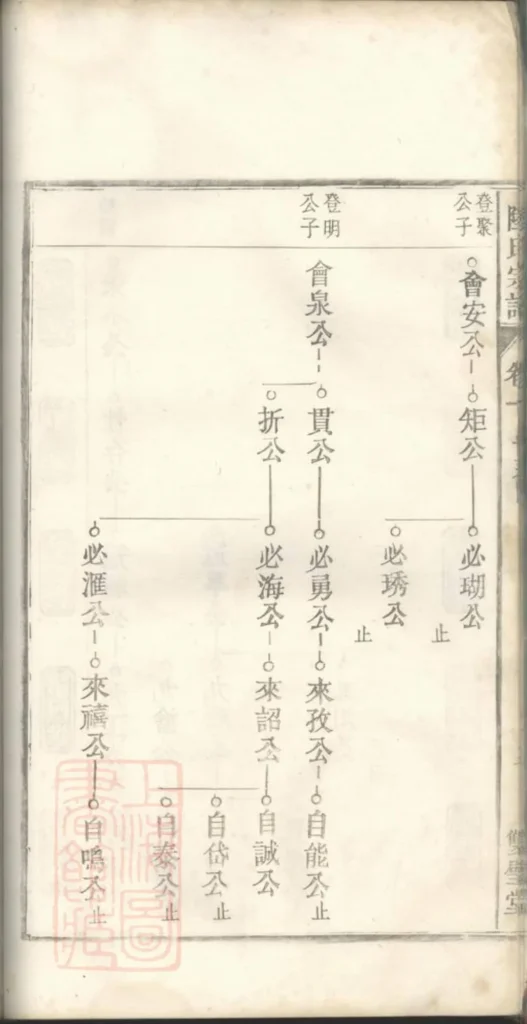 氏宗譜
卷十
雙璧堂
登聚
公子
會安公
矩公
必瑚公
止
必琇公
止
登明
公子
會泉公
貫公
必勇公
來孜公
自能公
止
折公
必海公
來詔公
自誠公
自岱公
止
自泰公
止
必滙公
來禧公
自鳴公
止
上海圖
書館藏